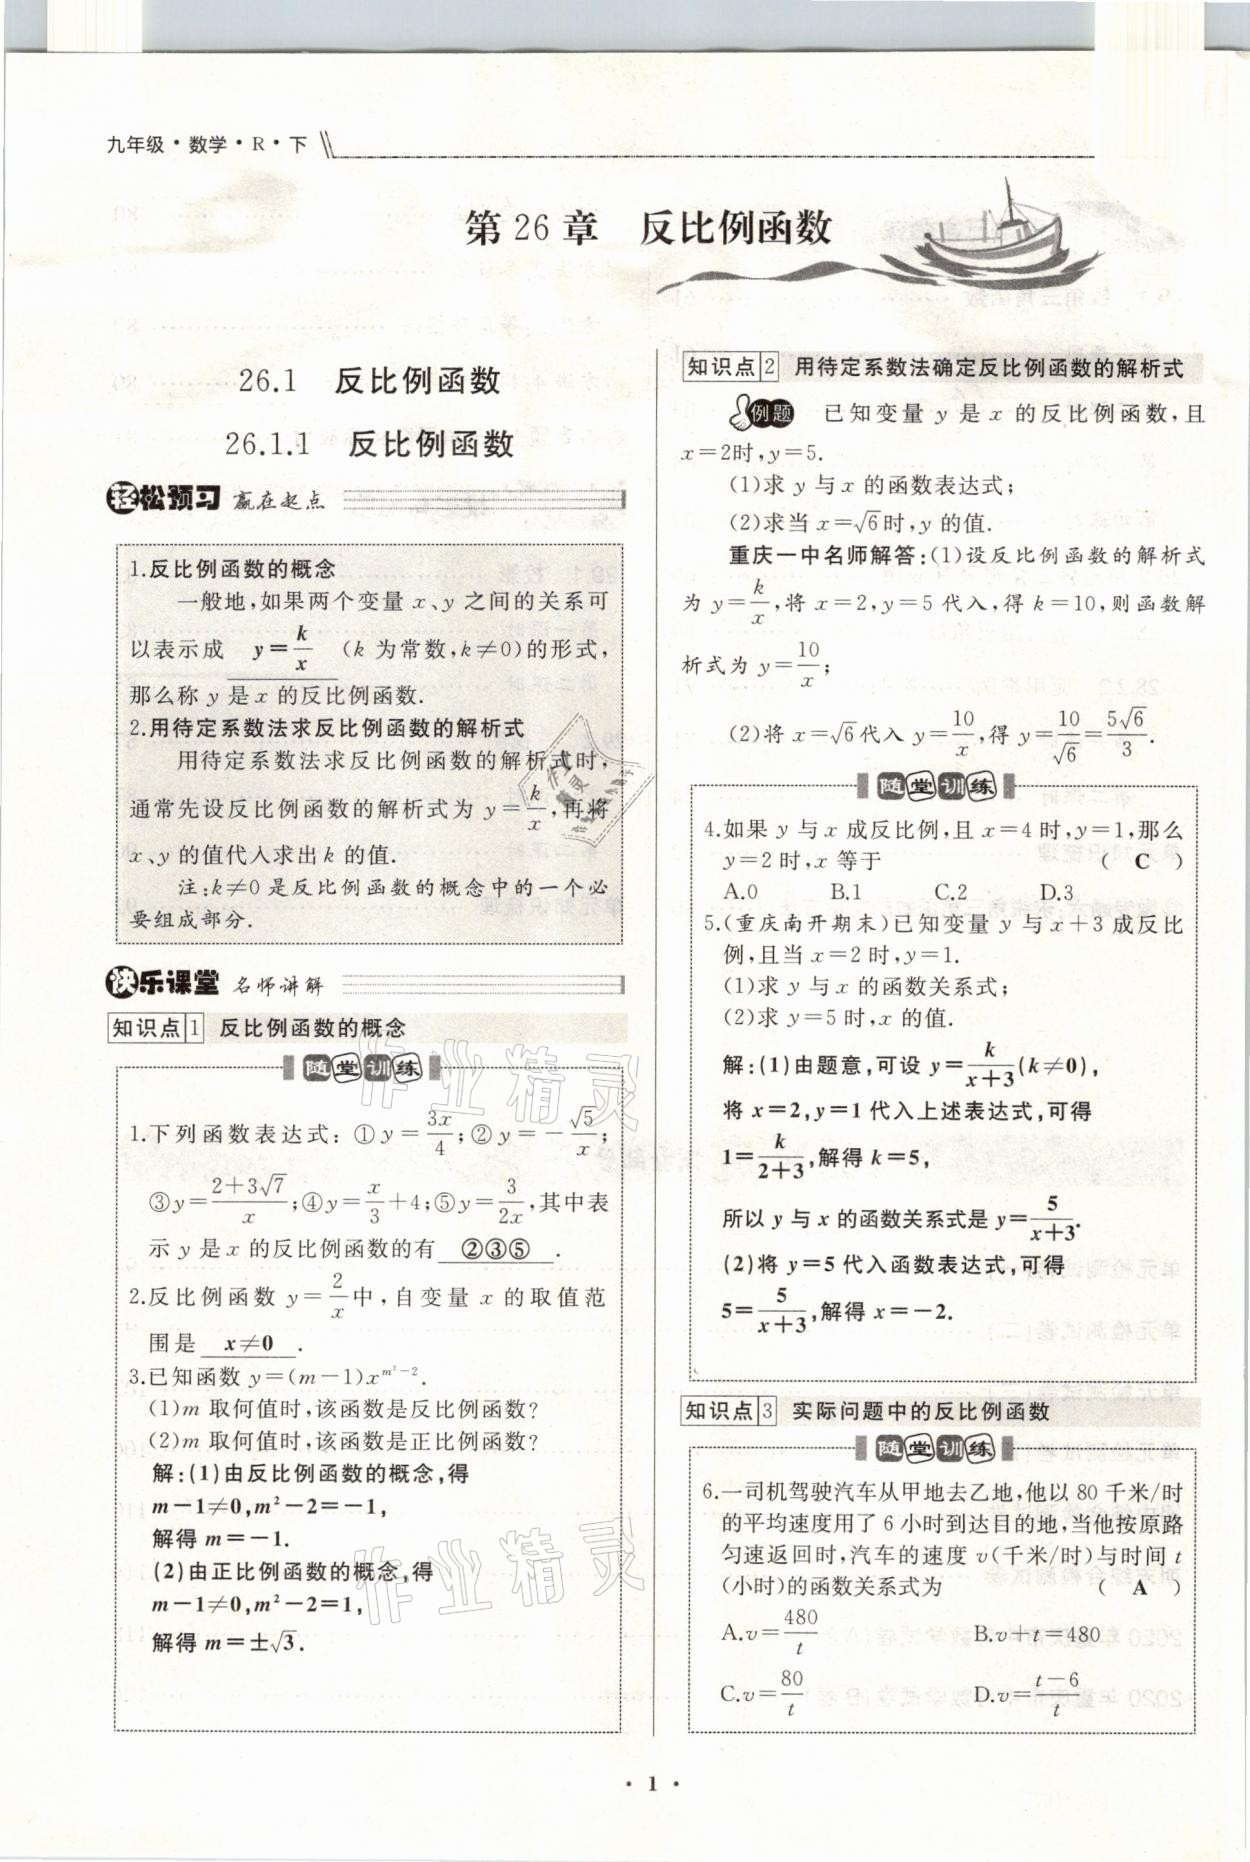 九年级·数学·R·下
第26章 反比例函数
26.1 反比例函数
26.1.1 反比例函数
轻松预习 赢在起点
1.反比例函数的概念
一般地,如果两个变量 x、y 之间的关系可
以表示成 y=k/x (k 为常数,k≠0)的形式,
那么称 y 是 x 的反比例函数.
2.用待定系数法求反比例函数的解析式
用待定系数法求反比例函数的解析式时,
通常先设反比例函数的解析式为 y=k/x,再将
x、y的值代入求出k的值.
注:k≠0 是反比例函数的概念中的一个必
要组成部分.
快乐课堂 名师讲解
知识点1 反比例函数的概念
随堂训练
1.下列函数表达式:①y=3x/4;②y=-√5/x;
③y=(2+3√7)/x;④y=x/3+4;⑤y=3/2x,其中表
示 y 是 x 的反比例函数的有 ②③⑤ .
2.反比例函数 y=2/x中,自变量 x 的取值范
围是 x≠0 .
3.已知函数 y=(m-1)x^{m²-2}.
(1)m 取何值时,该函数是反比例函数?
(2)m 取何值时,该函数是正比例函数?
解:(1)由反比例函数的概念,得
m-1≠0,m²-2=-1,
解得 m=-1.
(2)由正比例函数的概念,得
m-1≠0,m²-2=1,
解得 m=±√3.
知识点2 用待定系数法确定反比例函数的解析式
例题 已知变量 y 是 x 的反比例函数,且
x=2时,y=5.
(1)求 y 与 x 的函数表达式;
(2)求当 x=√6时,y 的值.
重庆一中名师解答:(1)设反比例函数的解析式
为 y=k/x,将 x=2,y=5 代入,得 k=10,则函数解
析式为 y=10/x;
(2)将 x=√6代入 y=10/x,得 y=10/√6=5√6/3.
随堂训练
4.如果 y 与 x 成反比例,且 x=4 时,y=1,那么
y=2 时,x 等于 ( C )
A.0 B.1 C.2 D.3
5.(重庆南开期末)已知变量 y 与 x+3 成反比
例,且当 x=2 时,y=1.
(1)求 y 与 x 的函数关系式;
(2)求 y=5 时,x 的值.
解:(1)由题意,可设 y=k/(x+3)(k≠0),
将 x=2,y=1 代入上述表达式,可得
1=k/(2+3),解得 k=5,
所以 y 与 x 的函数关系式是 y=5/(x+3).
(2)将 y=5 代入函数表达式,可得
5=5/(x+3),解得 x=-2.
知识点3 实际问题中的反比例函数
随堂训练
6.一司机驾驶汽车从甲地去乙地,他以 80 千米/时
的平均速度用了 6 小时到达目的地,当他按原路
匀速返回时,汽车的速度 v(千米/时)与时间 t
(小时)的函数关系式为 ( A )
A.v=480/t B.v+t=480
C.v=80/t D.v=(t-6)/t
· 1 ·
作业精灵
作业精灵